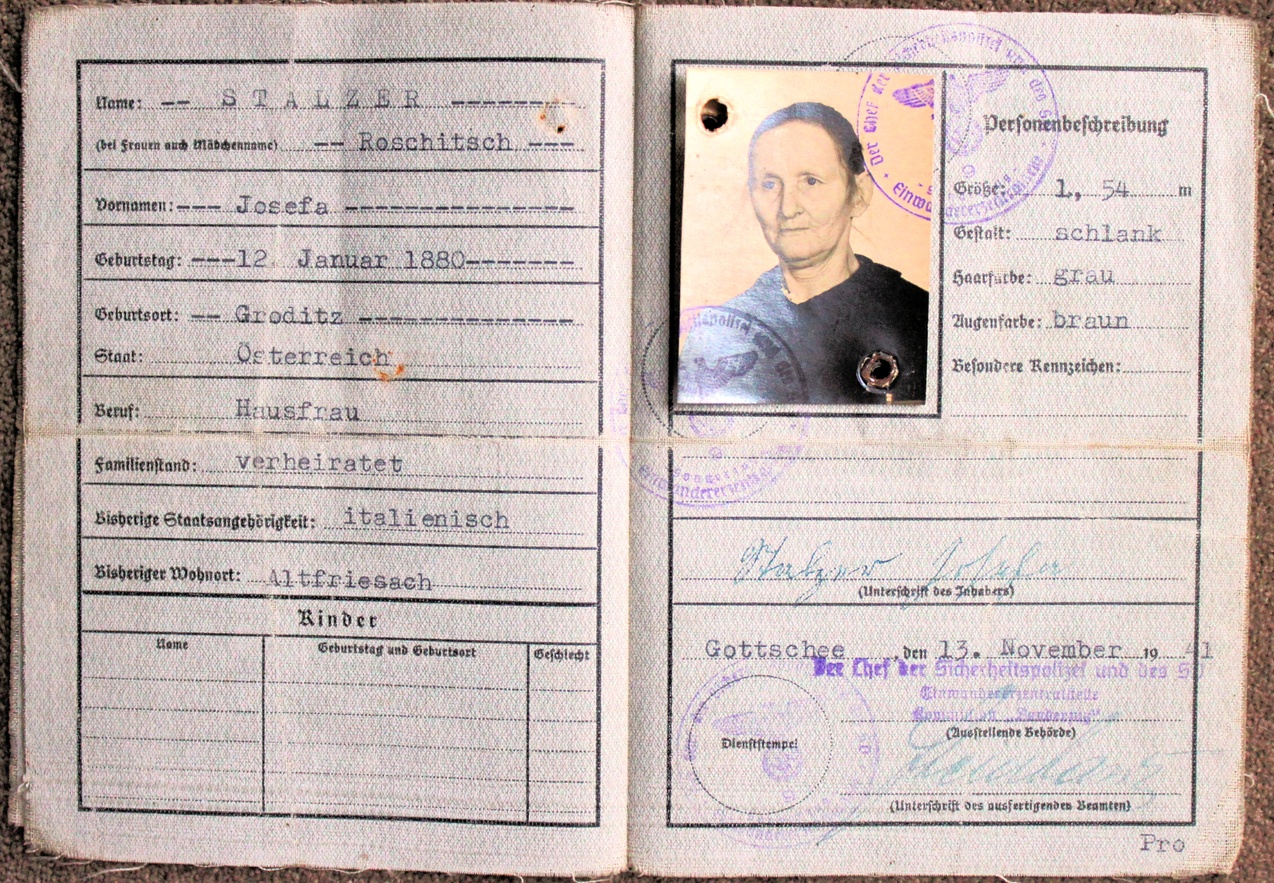 Name: -- STALZER -------
(bei Frauen auch Mädchenname) -- Roschitsch ---
Vornamen: --- Josefa -------------
Geburtstag: ---12. Januar 1880-------
Geburtsort: -- Groditz -------------
Staat: Österreich
Beruf: Hausfrau
Familienstand: verheiratet
Bisherige Staatsangehörigkeit: italienisch
Bisheriger Wohnort: Altfriesach
Kinder
Name Geburtstag und Geburtsort Geschlecht
Der Chef der Sicherheitspolizei und des SD
Einwandererzentralstelle
Personenbeschreibung
Größe: 1, 54 m
Gestalt: schlank
Haarfarbe: grau
Augenfarbe: braun
Besondere Kennzeichen:
Stalzer Josefa
(Unterschrift des Inhabers)
Gottschee, den 13. November 1941
Der Chef der Sicherheitspolizei und des SD
Einwandererzentralstelle
(Ausstellende Behörde)
Dienststempel
(Unterschrift des ausfertigenden Beamten)
Pro